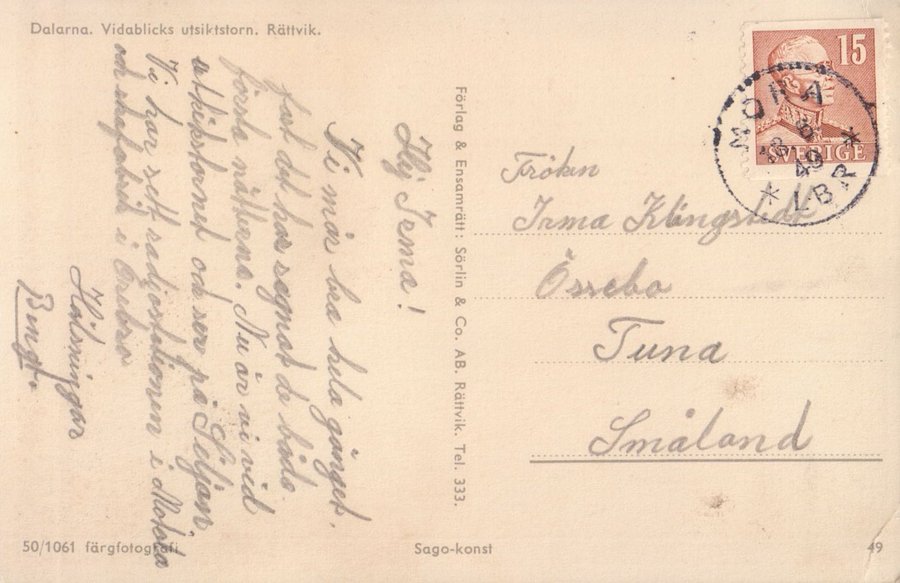 Dalarna. Vidablicks utsiktstorn. Rättvik.
Hej Irma!
Vi mår bra hela gänget,
fast det har regnat de båda
första nätterna. Nu är vi vid
utkikstornet och ser på Siljan.
Vi har sett radiostationen i Motala
och skofabrik i Örebro
Hälsningar
Bengt.
Förlag & Ensamrätt: Sörlin & Co. AB. Rättvik. Tel. 333.
15
SVERIGE
MORA
49
LBR
Fröken
Irma Klingstedt
Össebo
Tuna
Småland
50/1061 färgfotografi
Sago-konst
49